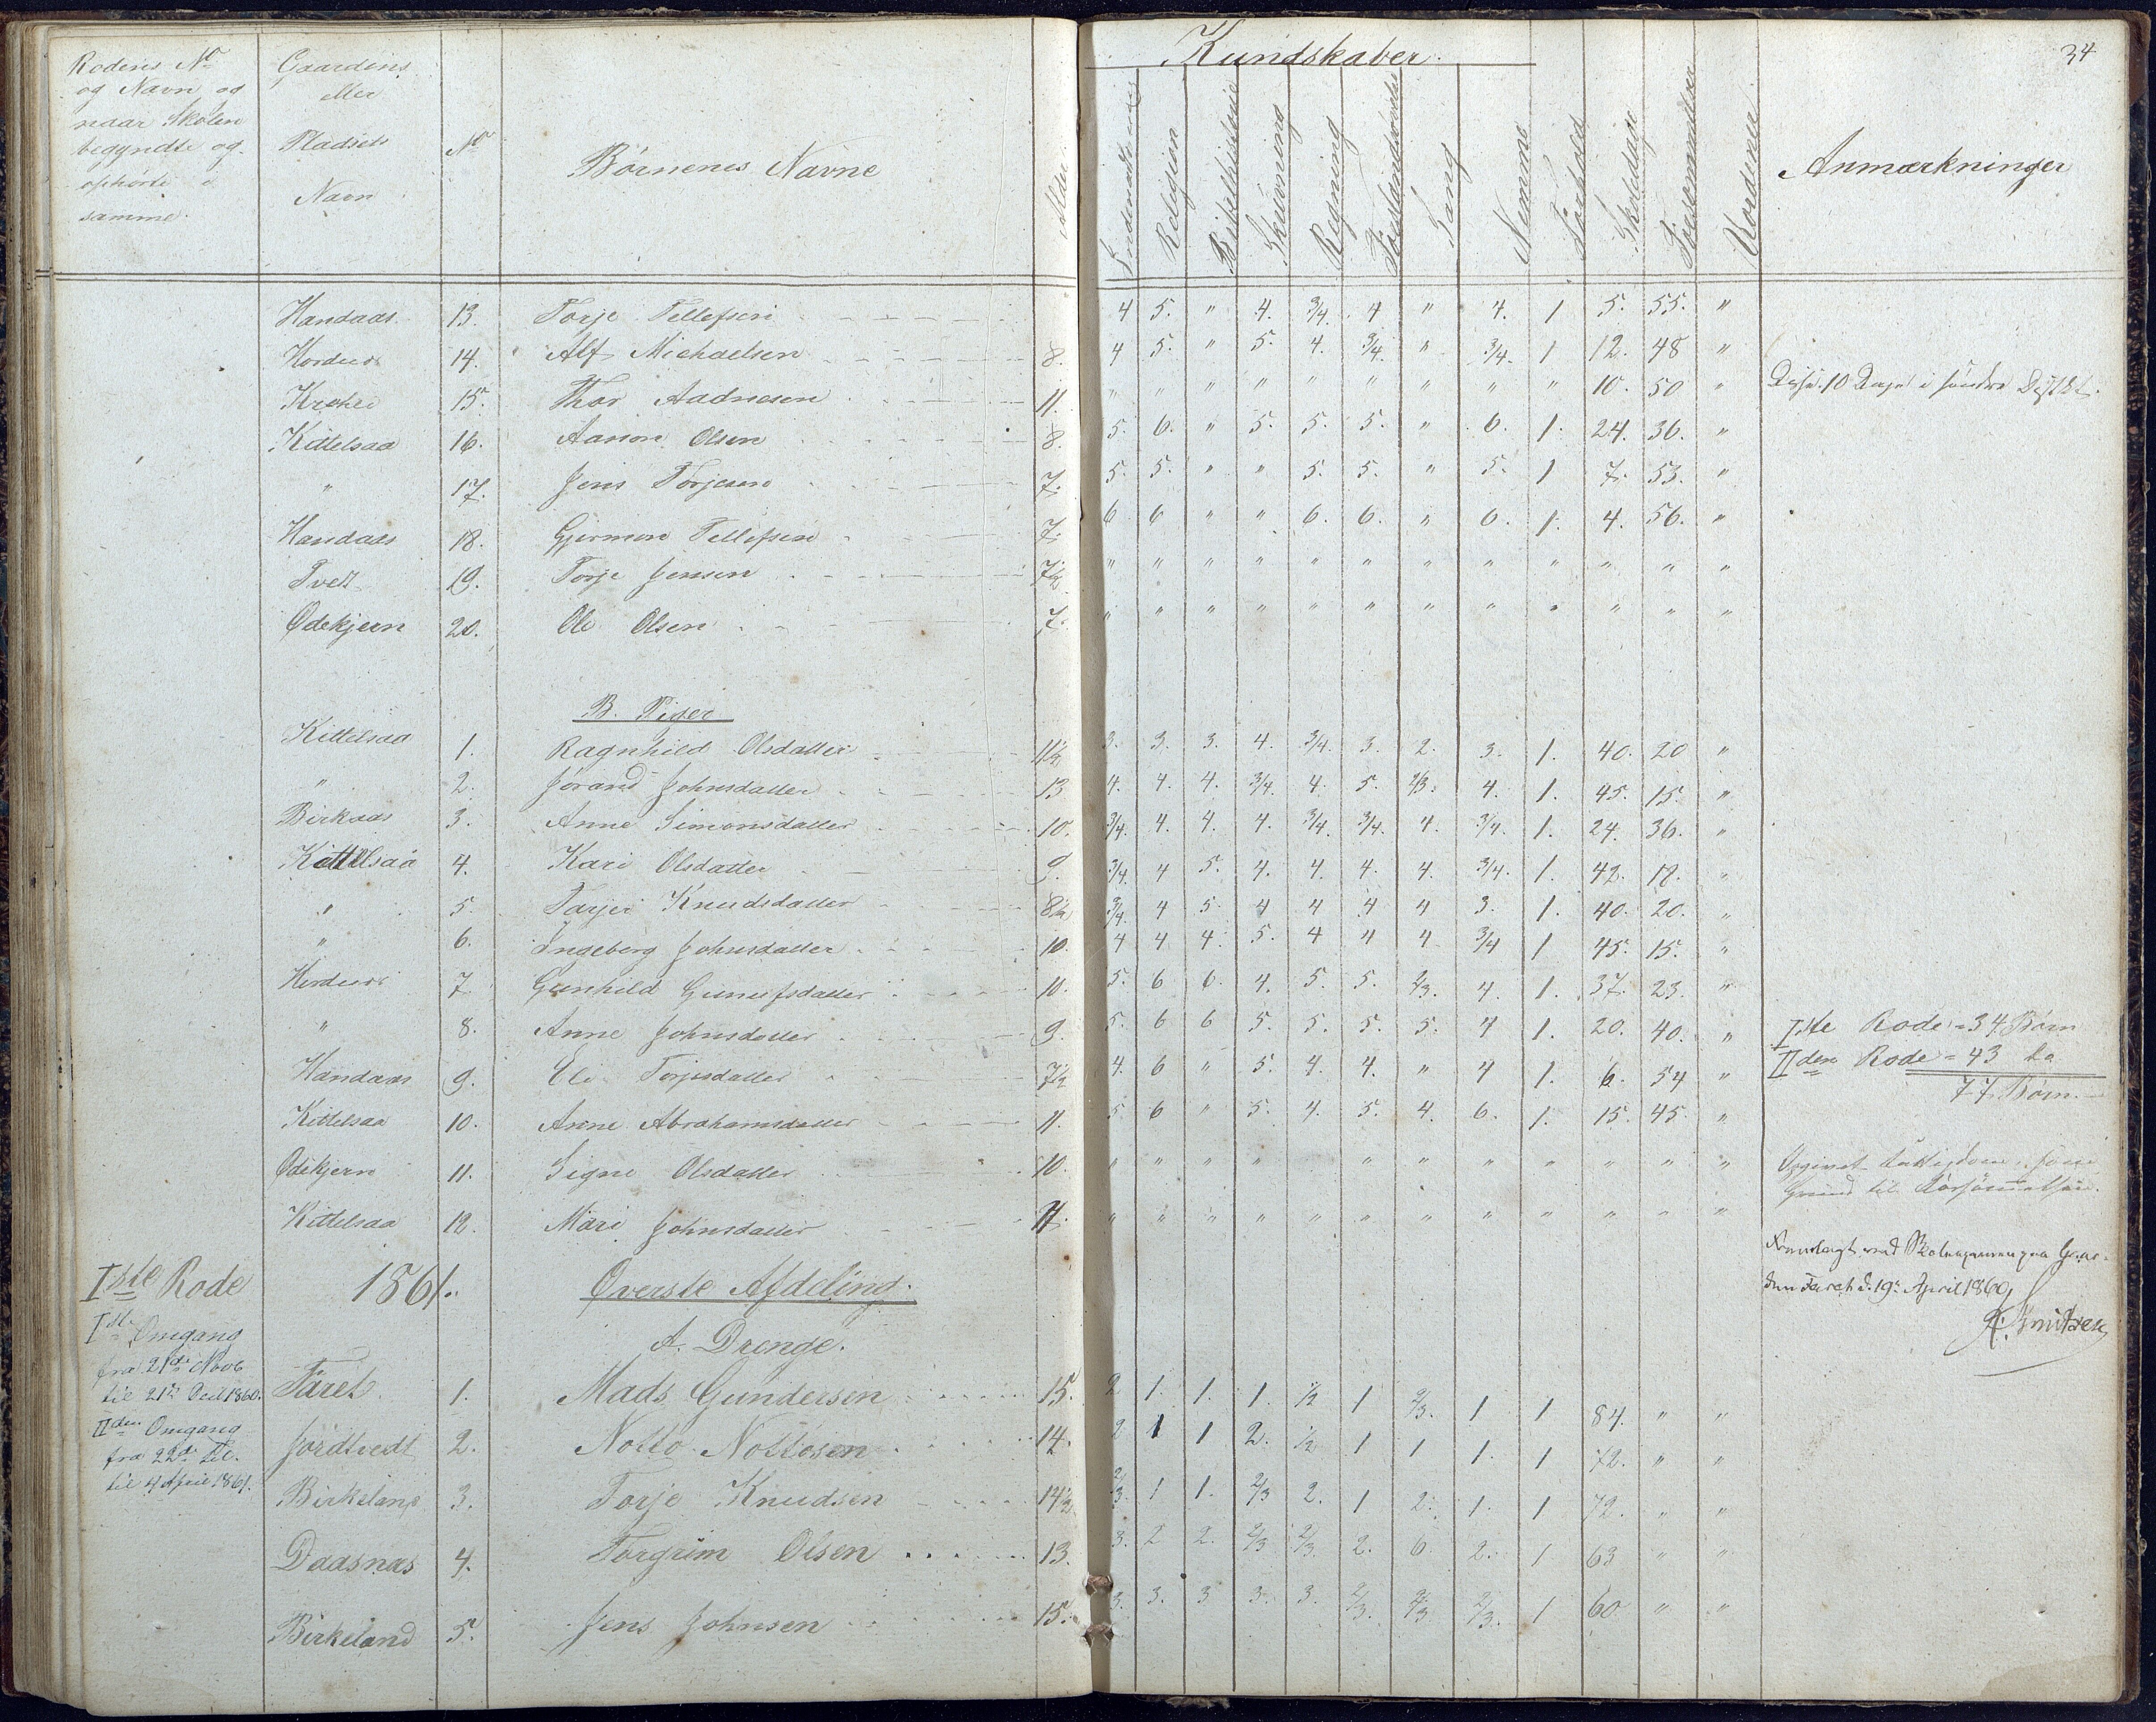 34
Kundskaber.
Rodens No
og Navn og
naar Skolen
begyndte og
ophørte
samme.
Gaardens
eller
Pladsets
Navn
No
Børnenes Navne
Alder
Indenadslæsning
Religion
Bibelhistorie
Skrivning
Regning
Forstandsøvelse
Sang
Nemme
Forhold
Skoledage
Forsømmelser
Vordener
Anmærkninger
Handaas 13. Torje Tellefsen 4 5. " 4. 3/4. 4 " 4. 1 5. 55. "
Hordnes 14. Alf Michaelsen 8. 4 5. " 5. 4. 3/4. " 3/4. 1 12. 48 "
15. Thor Aadnesen 11. " " " " " " " " " 10. 50 " 10 Dage i søndre
Kittelsaa 16. Aanon Olsen 8. 5. 6. " 5. 5. 5. " 6. 1. 24. 36. "
" 17. Jens Torjesen 7. 5. 5. " " 5. 5. " 5. 1 7. 53. "
Handaas 18. Gjermon Tellefsen 7. 6 6 " " 6. 6. " 6. 1. 4. 56. "
Tvedt 19. Torje Jensen 7½ " " " " " " " " " " " "
Ødekjern 20. Ole Olsen 7. " " " " " " " " " " " "
B. Piger
Kittelsaa 1. Ragnhild Olsdatter 11½ 3. 3. 3. 4. 3/4. 3. 2. 3. 1. 40. 20 "
" 2. Jørand Johnsdatter 13 4. 4. 4. 3/4. 4. 5. 2/3. 4. 1. 45. 15. "
Birkaas 3. Anne Simonsdatter 10. 3/4. 4. 4. 4. 3/4. 3/4. 4. 3/4. 1. 24. 36. "
Kittelsaa 4. Kari Olsdatter 9. 3/4. 4 5. 4. 4. 4. 4. 3/4. 1. 42. 18. "
" 5. Tarjer Knudsdatter 8½ 3/4. 4 5. 4 4 4 4 3. 1. 40. 20. "
" 6. Ingeborg Johnsdatter 10. 4 4 4. 5. 4 4 4 3/4 1 45. 15. "
Hordnes 7 Gunhild Gunufsdatter 10. 5. 6 6. 4. 5. 5. 2/3. 4. 1. 37. 23. "
" 8. Anne Johnsdatter 9. 5. 6 6 5. 5. 5. 5. 4 1. 20. 40. " Iste Rode = 34 Børn
Handaas 9. Eli Torjesdatter 7½ 4. 6 " 5. 4. 4. " 4 1. 6. 54 " IIden Rode = 43 do
77 Børn.
Kittelsaa 10. Anne Abrahamsdatter 11. 5. 6 " 5. 4. 5. 4. 6. 1. 15. 45. "
Ødekjern 11. Signe Olsdatter 10. " " " " " " " " " " " Opgivet Fattigdom som
Grund til Forsømmelsen.
Kittelsaa 12. Mari Johnsdatter 11. " " " " " " " " " " " "
Fremlagt ved Skoleexamen paa Gaar-
den Faret d. 19. April 1860,
Knutzen
Iste Rode 1861. Øverste Afdeling.
A. Drenge.
Iste Omgang
fra 21de Novb
til 21de Decb 1860.
IIden Omgang
fra 22de
til 4 April 1861.
Faret 1. Mads Gundersen 15. 2 1. 1. 1. ½ 1 2/3. 1 1 84. " "
Jordtvedt 2. Notto Nottosen 14. 2 1 1 2. ½ 1 1 1. 1 72. " "
Birkeland 3. Torje Knudsen 14½ 2/3. 1 1. 2/3 2. 1 2. 1. 1 72. " "
Daasnes 4. Torgrim Olsen 13. 3. 2 2. 2/3 2/3. 2. 6 2. 1 63 " "
Birkeland 5. Jens Johnsen 15. 3. 3. 3 3. 3. 2/3. 2/3. 2/3. 1 60 " "